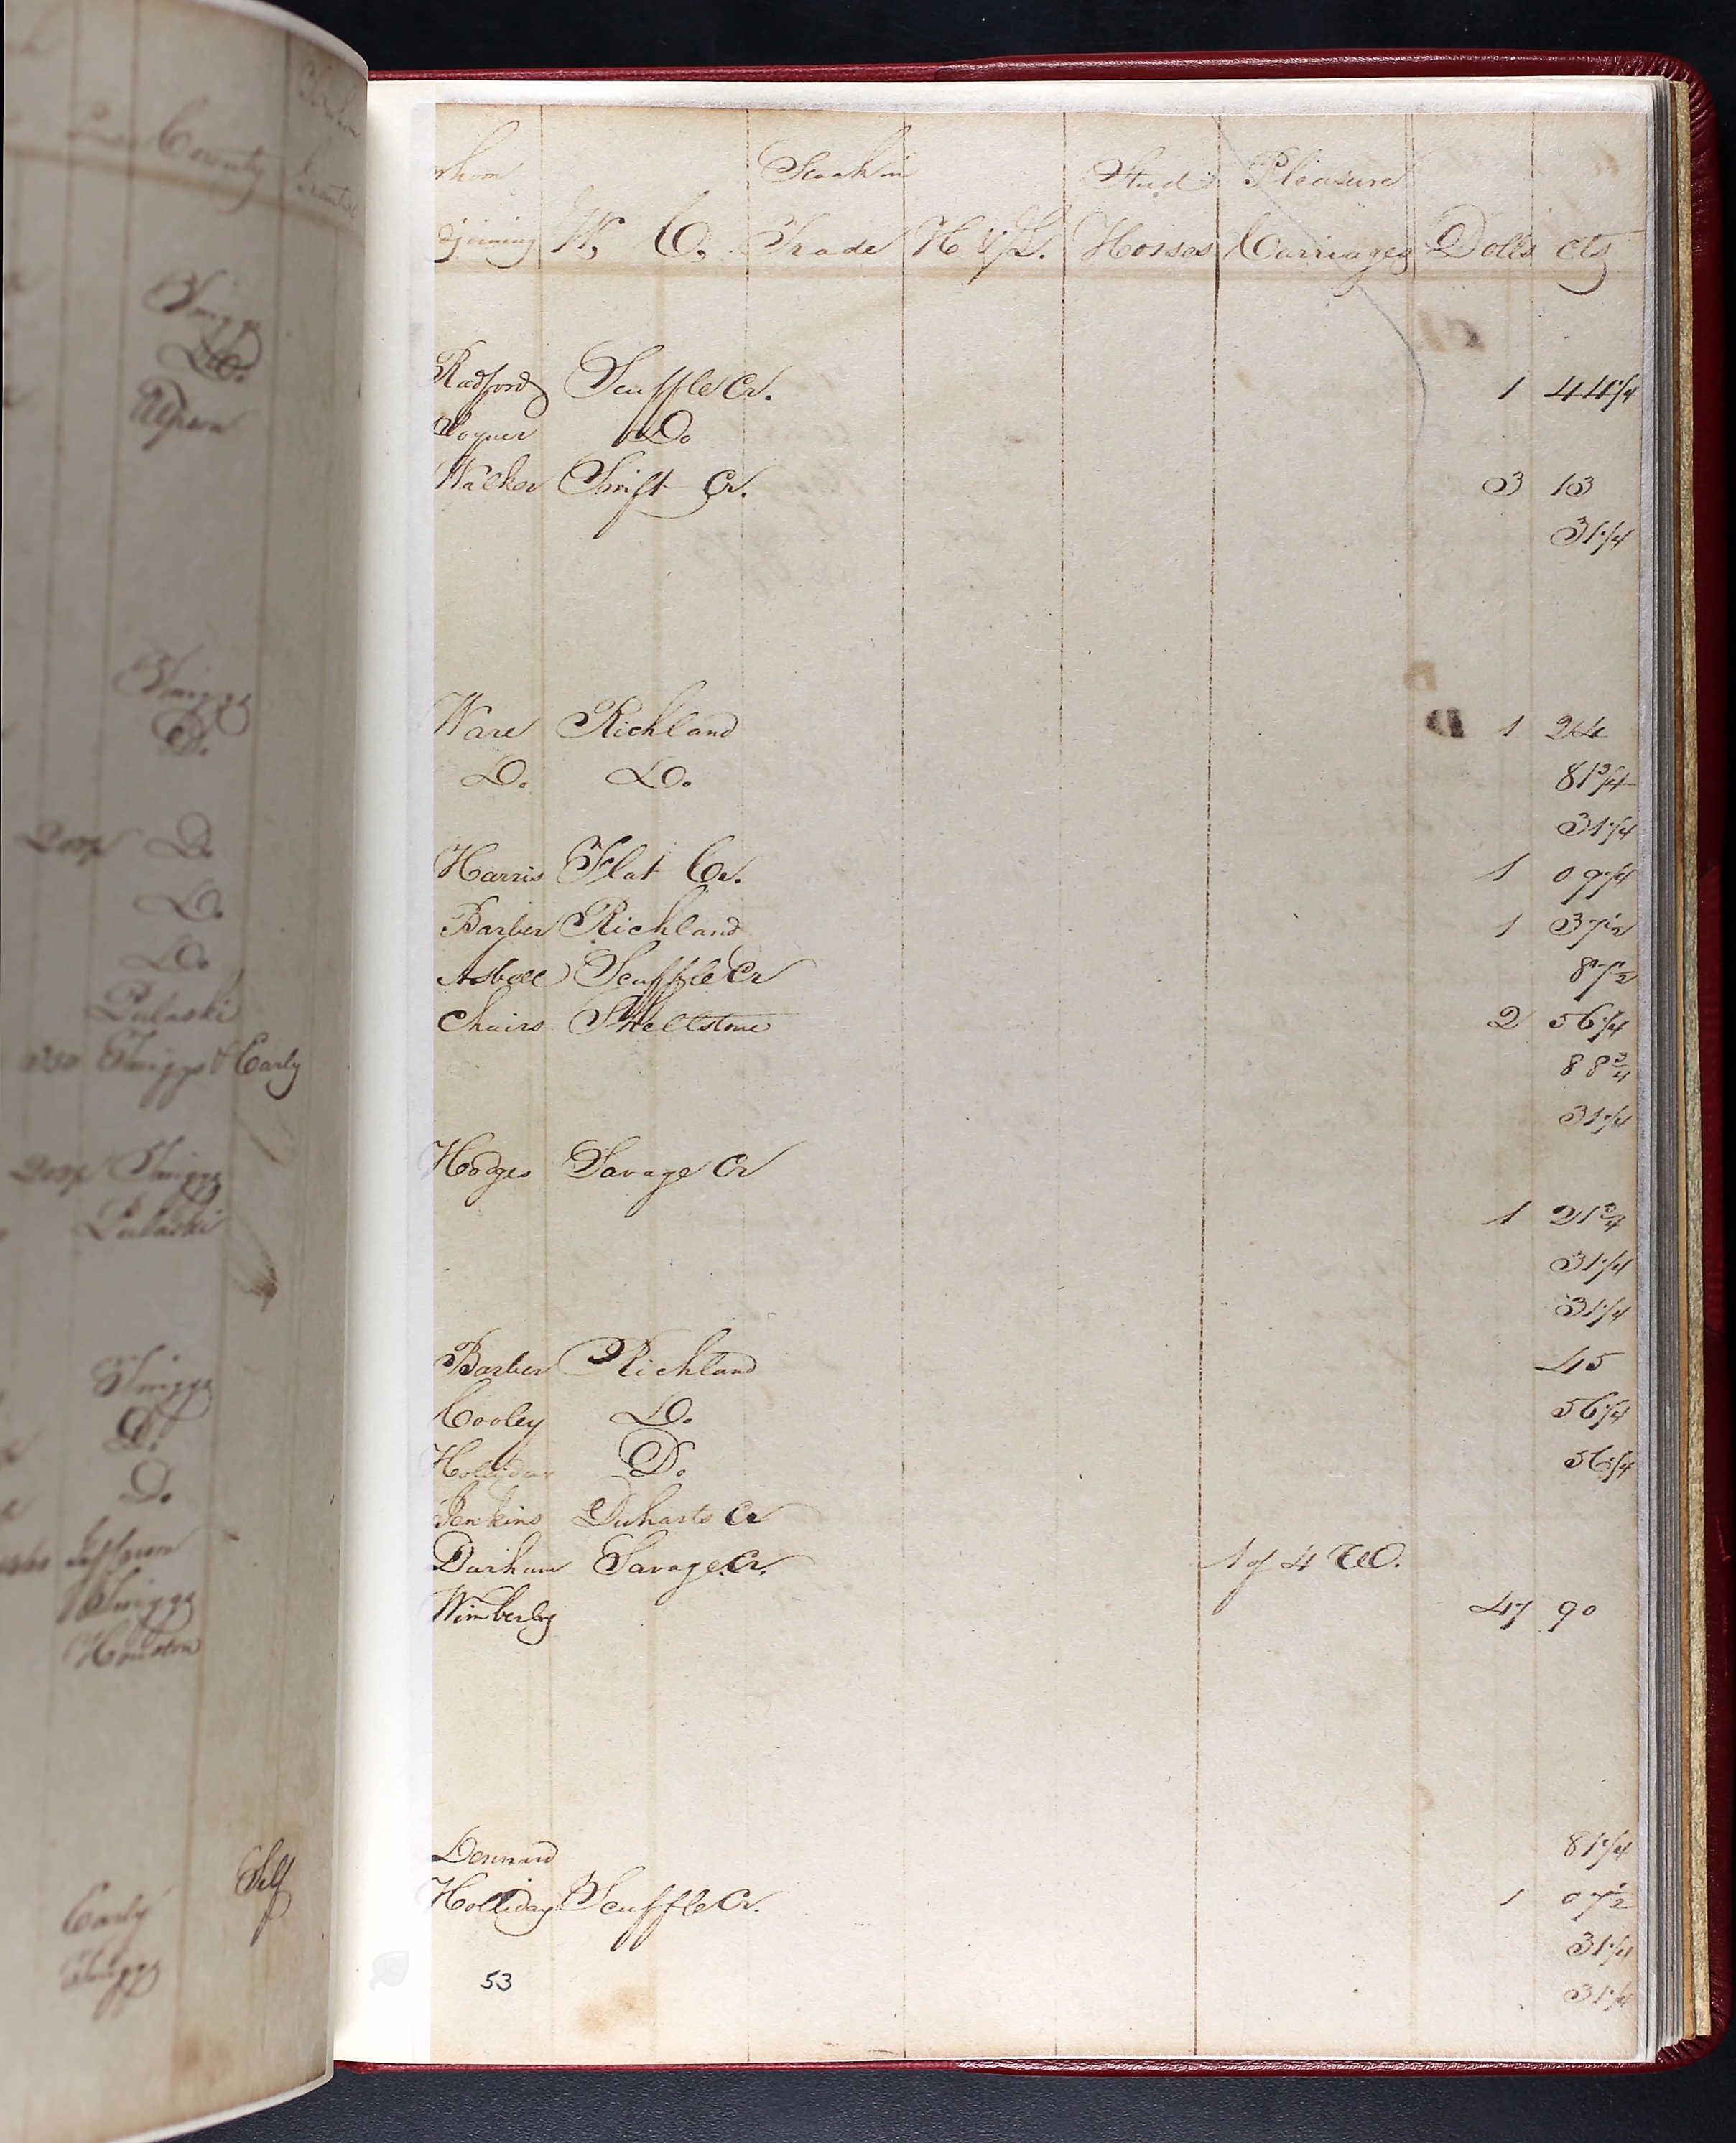 County
Twiggs
Do.
Twiggs
D.
202½ D.
Do.
Do.
Pulaski
Twiggs & Early
202½ Twiggs
Pulaski
Twiggs
D.
D.
Jefferson
Twiggs
Houston
Self
Early
Twiggs
whom Stock in Stud Pleasure
djoining W, C. Trade H & L. Horses Carriages Dolls cts
Radford Scuffle Cr. 1 44¼
Joyner Do
Walker Swift Cr. 3 13
31¼
Ware Richland 1 24
D. Do. 81¾
31¼
Harris Flat Cr. 1 09¼
Barber Richland 1 37½
Asbell Scuffle Cr 87½
Chairs Shellstone 2 56¼
88¾
31¼
Hodges Savage Cr
1 21¾
31¼
31¼
Barber Richland 45
Cooley Do. 56¼
Holliday D. 56¼
Jenkins Duharts Cr
Durham Savage Cr. 1 of 4 W.
Wimberly 47 90
Dennard 81¼
Holliday Scuffle Cr. 1 07½
31¼
31¼
53